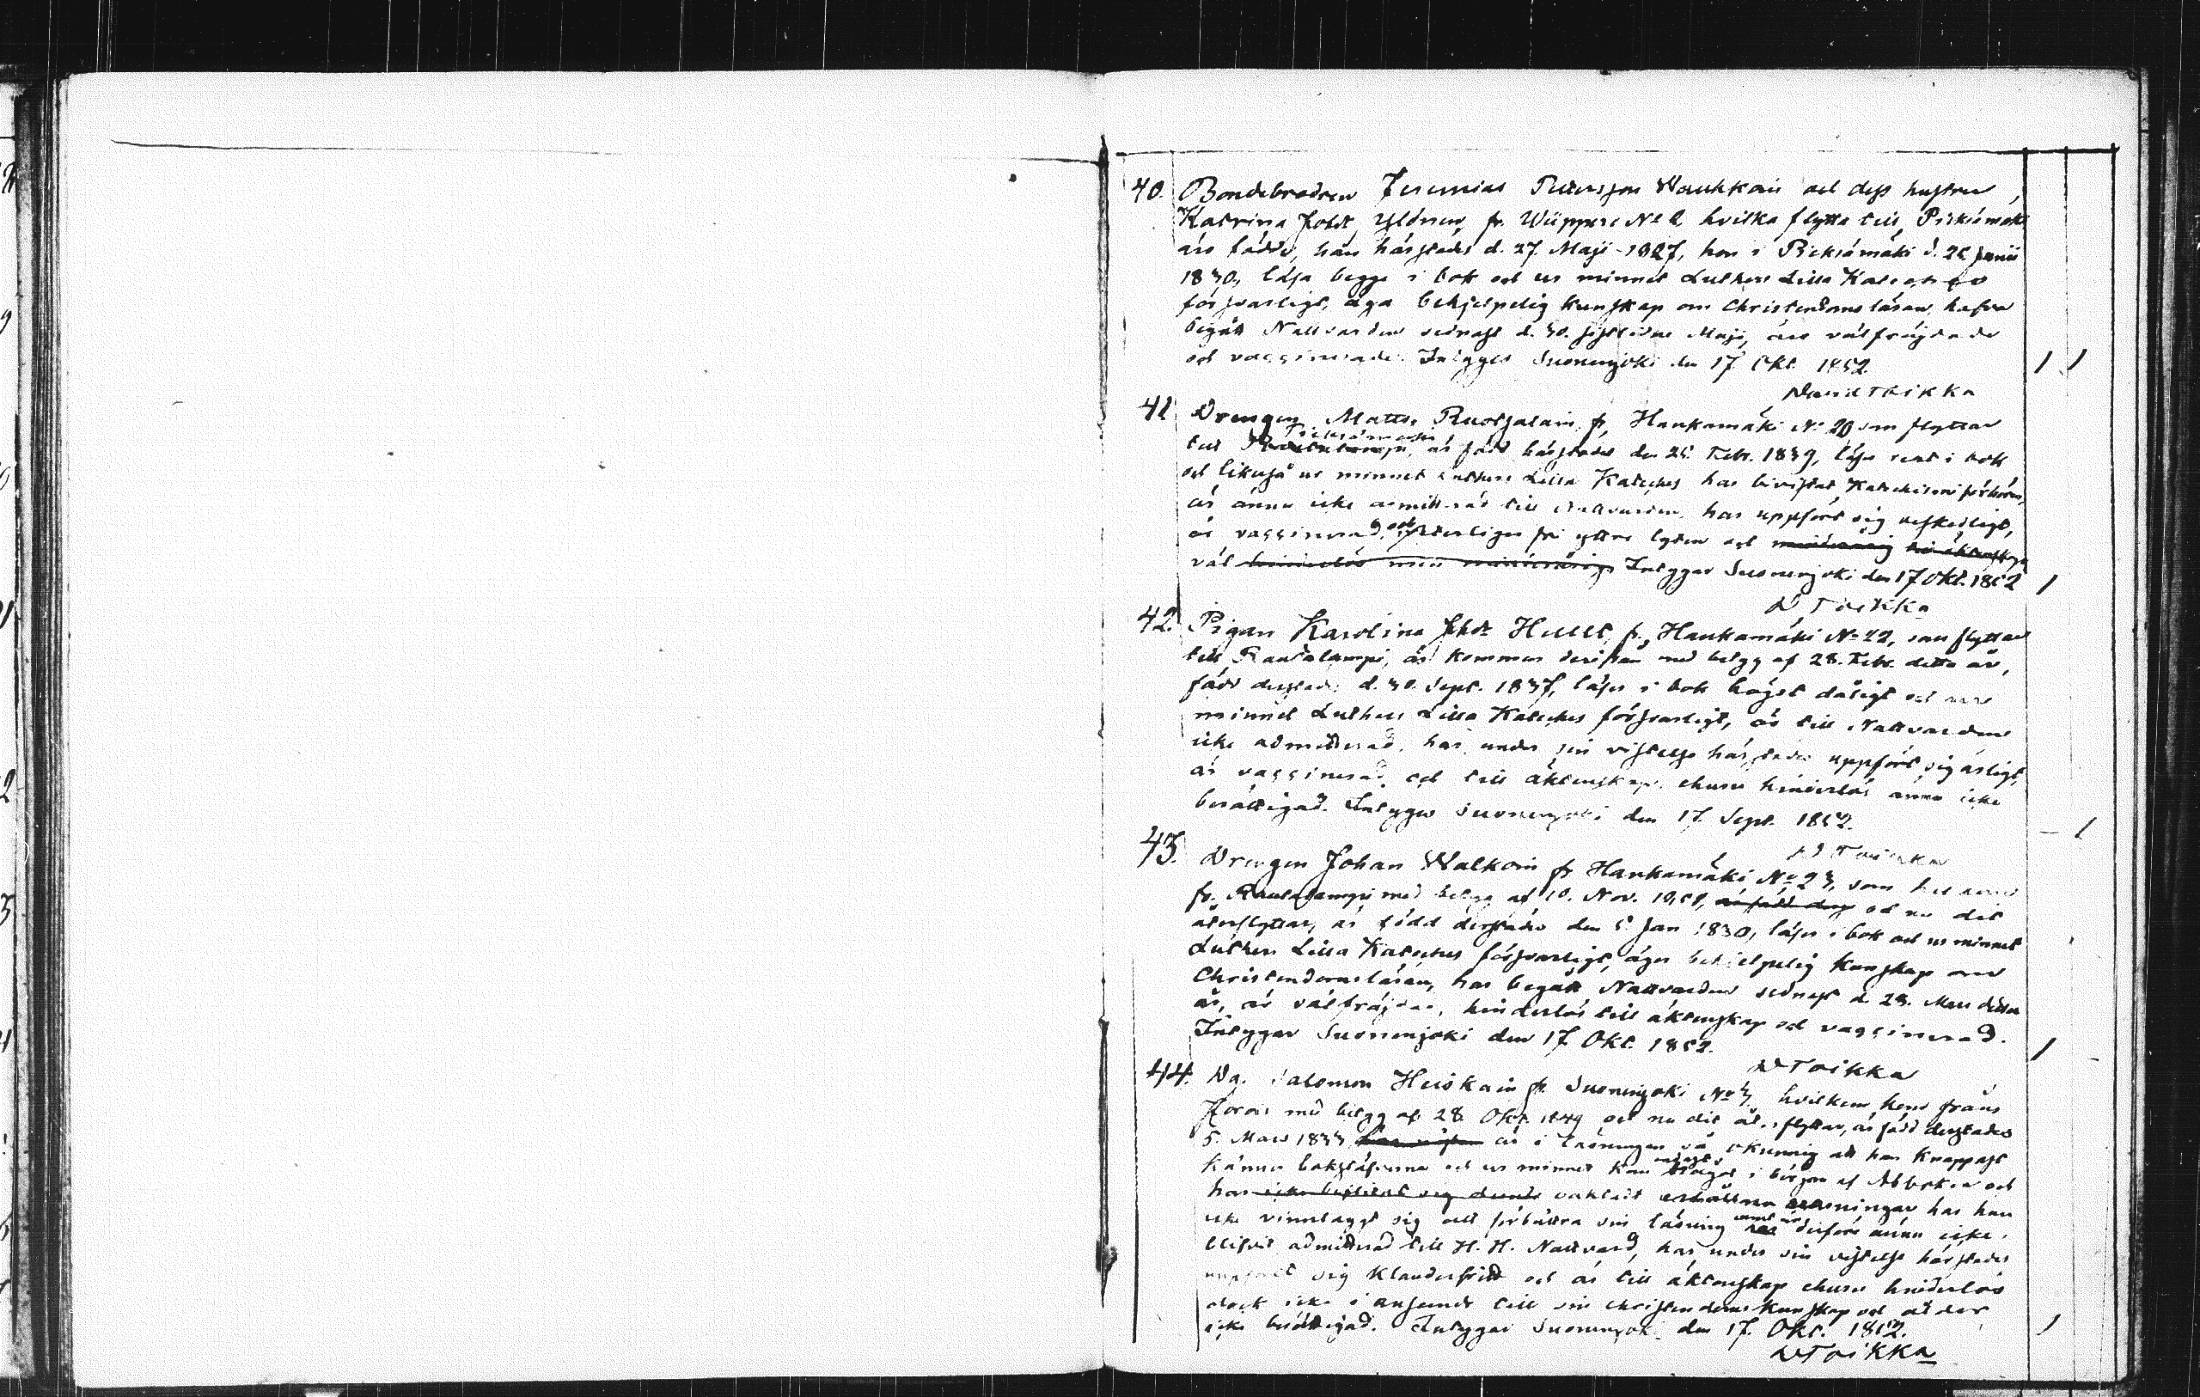 40. Bondebrodren Jeremias Petersson Waukkain och dess hustru,
Katrina Johsdr Ylönen, fr. Wiippere No 2, hvilka flytta till Pieksämäki
äro födde, han härstädes d. 27. Maji 1827, hon i Pieksämäki d. 26 Junii
1830, läsa begge i bok och ur minnet Luthers Lilla Kateches
försvarligt, äga behjelpelig kunskap om Christendomsläran, hafva
begått Nattvarden sednast d. 30. sistlidne Maji, äro välfräjdade
och vaccinerade. Intygas Suonenjoki den 17 Okt. 1852.
David Toikka
41. Drengen Matts Ruotsalain fr. Haukamäki No 20 som flyttar
till Pieksämäki Rautalampi, är född härstädes den 25 Febr. 1839, läser rent i bok
och likaså ur minnet Luthers Lilla Kateches har bivistat Katechismiförhören,
är ännu icke admitterad till Nattvarden, har uppfört sig
är vaccinerad, och ytterligare fri yttre lyten och
väl hinderlös men Intygar Suonenjoki den 17 Okt. 1852
D Toikka
42. Pigan Karolina Hult fr. Haukamäki No 22, som flyttar
till Rautalampi, är kommen derifrån med betyg af 28. Febr. detta år,
född derstädes d. 30. Sept. 1837, läser i bok högst dåligt och ur
minnet Luthers Lilla Kateches försvarligt, är till Nattvarden
icke admitterad, har under sin vistelse härstädes uppfört sig ärligt,
är vaccinerad och till äktenskap, ehuru hinderlös ännu icke
berättigad. Intygas Suonenjoki den 17. Sept. 1852.
D Toikka
43. Drengen Johan Walkoin fr Haukamäki No 23, som
fr. Rautalampi med betyg af 10. Nov. 1851, är född der och nu dit
återflyttar, är född derstädes den 5 Jan 1830, läser i bok och ur minnet
Luthers Lilla Kateches försvarligt, äger behjelpelig kunskap om
Christendomsläran, har begått Nattvarden sednast d. 28. Mars detta
år, är välfräjdad, hinderlös till äktenskap och vaccinerad.
Intygar Suonenjoki den 17 Okt. 1852.
D Toikka
44. Dg. Salomon Heiskain fr. Suonenjoki No 3, hvilken kom från
Jorois med betyg af 28 Okt. 1849 och nu dit återflyttar, är född derstädes
5. Mars 1833 är i läsningen så okunnig att han knappast
känner bokstäfverna och ur minnet kan något i början af Abboken och
har icke beflitat sig dervid oaktadt erhållna varningar har han
icke vinnlaggt sig att förbättra sin läsning samt är derföre ännu icke
blifvit admitterad till H. H. Nattvard, har under sin vistelse härstädes
uppfört sig klanderfritt och är till äktenskap ehuru hinderlös
dock icke i anseende till sin christendomskunskap och ålder
icke berättigad. Intygar Suonenjoki den 17. Okt. 1852.
D Toikka